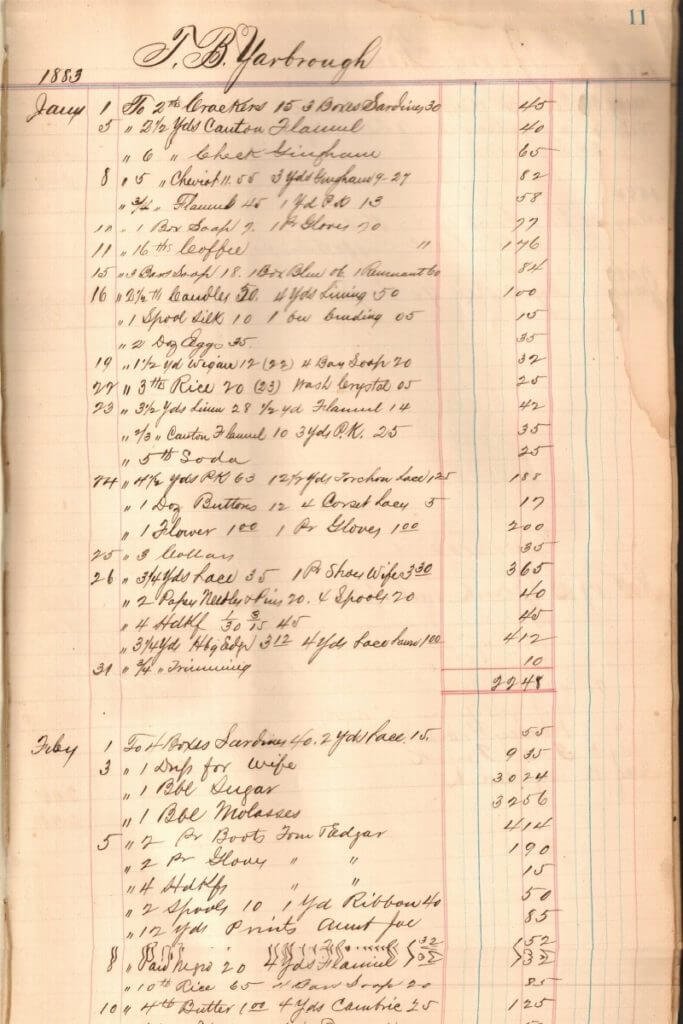 11
T. B. Yarbrough
1883
Jany 1 To 2 lbs Crackers 15 3 Boxes Sardines 30 45
5 " 2 1/2 Yds Canton Flannel 40
" 6 " Check Gingham 65
8 " 5 " Cheviot 11. 55 3 Yds Gingham 9 - 27 82
" 3/4 " Flannel 45 1 Yd P.K 13 58
10 " 1 Box Soap 7. 1 Pr Gloves 70 77
11 " 16 lbs Coffee " 176
15 " 3 Bars Soap 18. 1 Box Blue 06 1 Remnant 60 84
16 " 2 1/2 lb Candles 50. 4 Yds Lining 50 100
" 1 Spool Silk 10 1 binding 05 15
" 2 Doz Eggs 35 35
19 " 1 1/2 yd Wigan 12 (22) 4 Bar Soap 20 32
22 " 3 lb Rice 20 (23) Wash Crystal 05 25
23 " 3 1/2 Yds Linen 28 1/2 yd Flannel 14 42
" 2/3 " Canton Flannel 10 3 Yds P.K. 25 35
" 5 lb Soda 25
24 " 4 1/2 Yds PK 63 12 1/2 Yds Torchon Lace 125 188
" 1 Doz Buttons 12 4 Corset Laces 5 17
" 1 Flower 1 00 1 Pr Gloves 1 00 200
25 " 3 Collars 35
26 " 3 1/4 Yds Lace 35 1 Pr Shoes Wife 3 30 365
" 2 Paper Needles & Pins 20. 4 Spools 20 40
" 4 Hdkf 1/30 3/15 45 45
" 3 1/4 Yds Hbg Edg 3 12 4 Yds Lace 1 00 412
31 " 3/4 " Trimming 10
2248
Feby 1 To 4 Boxes Sardines 40. 2 Yds Lace. 15. 55
3 " 1 for Wife 9 35
" 1 Bbl Sugar 3024
" 1 Bbl Molasses 3256
5 " 2 Pr Boots Tom & Edgar 414
" 2 Pr Gloves " " 190
" 4 Hdkfs " " 15
" 2 Spools 10 1 Yd Ribbon 40 50
" 12 Yds Prints Aunt Joe 85
8 " Paid 20 4 Yds Flannel 32 52
" 10 lb Rice 65 4 Bar Soap 20 85
10 " 4 lb Butter 1 00 4 Yds Cambric 25 125